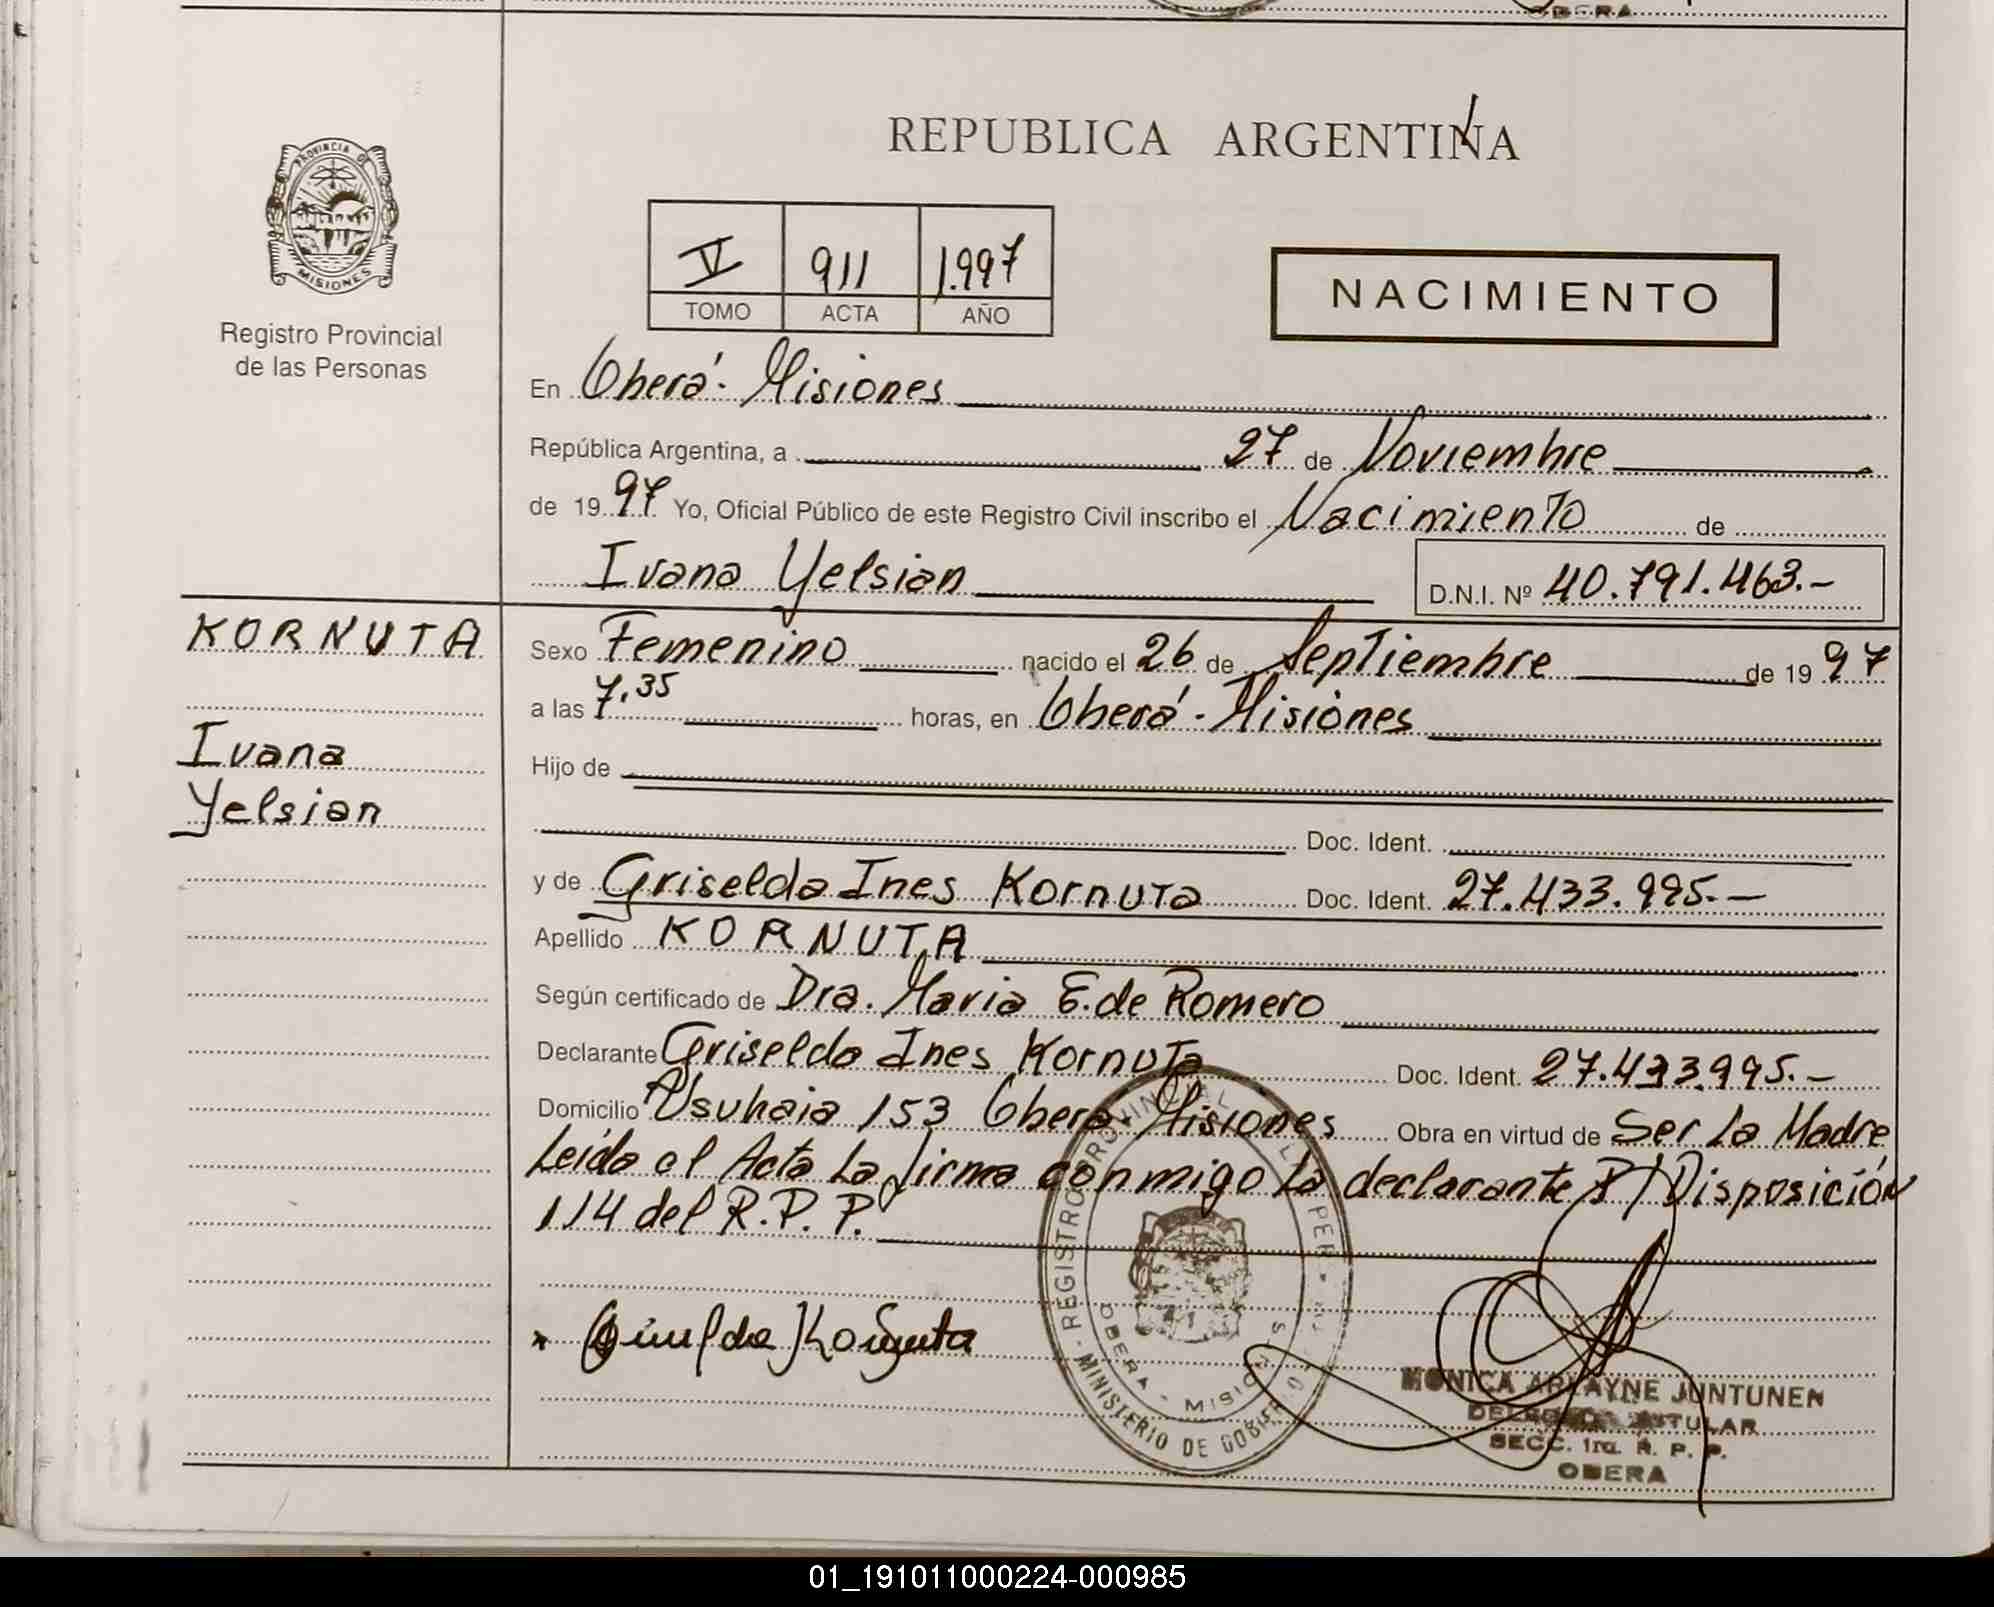 OBERA
REPUBLICA ARGENTINA
PROVINCIA D
MISIONES
Registro Provincial
de las Personas
V 911 1.997
TOMO ACTA AÑO
NACIMIENTO
En Oberá - Misiones
República Argentina, a 27 de Noviembre
de 19 97 Yo, Oficial Público de este Registro Civil inscribo el Nacimiento de
Ivana Yelsian D.N.I. Nº 40.791.463.-
KORNUTA
Ivana
Yelsian
Sexo Femenino nacido el 26 de Septiembre de 19 97
a las 7.35 horas, en Oberá - Misiones
Hijo de
Doc. Ident.
y de Griselda Ines Kornuta Doc. Ident. 27.433.995.-
Apellido KORNUTA
Según certificado de Dra. Maria E. de Romero
Declarante Griselda Ines Kornuta Doc. Ident. 27.433.995.-
Domicilio Usuhaia 153 Oberá Misiones Obra en virtud de Ser La Madre
Leida el Acta La firma conmigo La declarante P/ Disposición
114 del R.P.P.
Griselda Kornuta
REGISTRO PROVINCIAL
MINISTERIO DE GOBIERNO
OBERA - MISIONES
MONICA ARLAYNE JUNTUNEN
TITULAR
SECC. 1ra. R. P. P.
OBERA
01_191011000224-000985